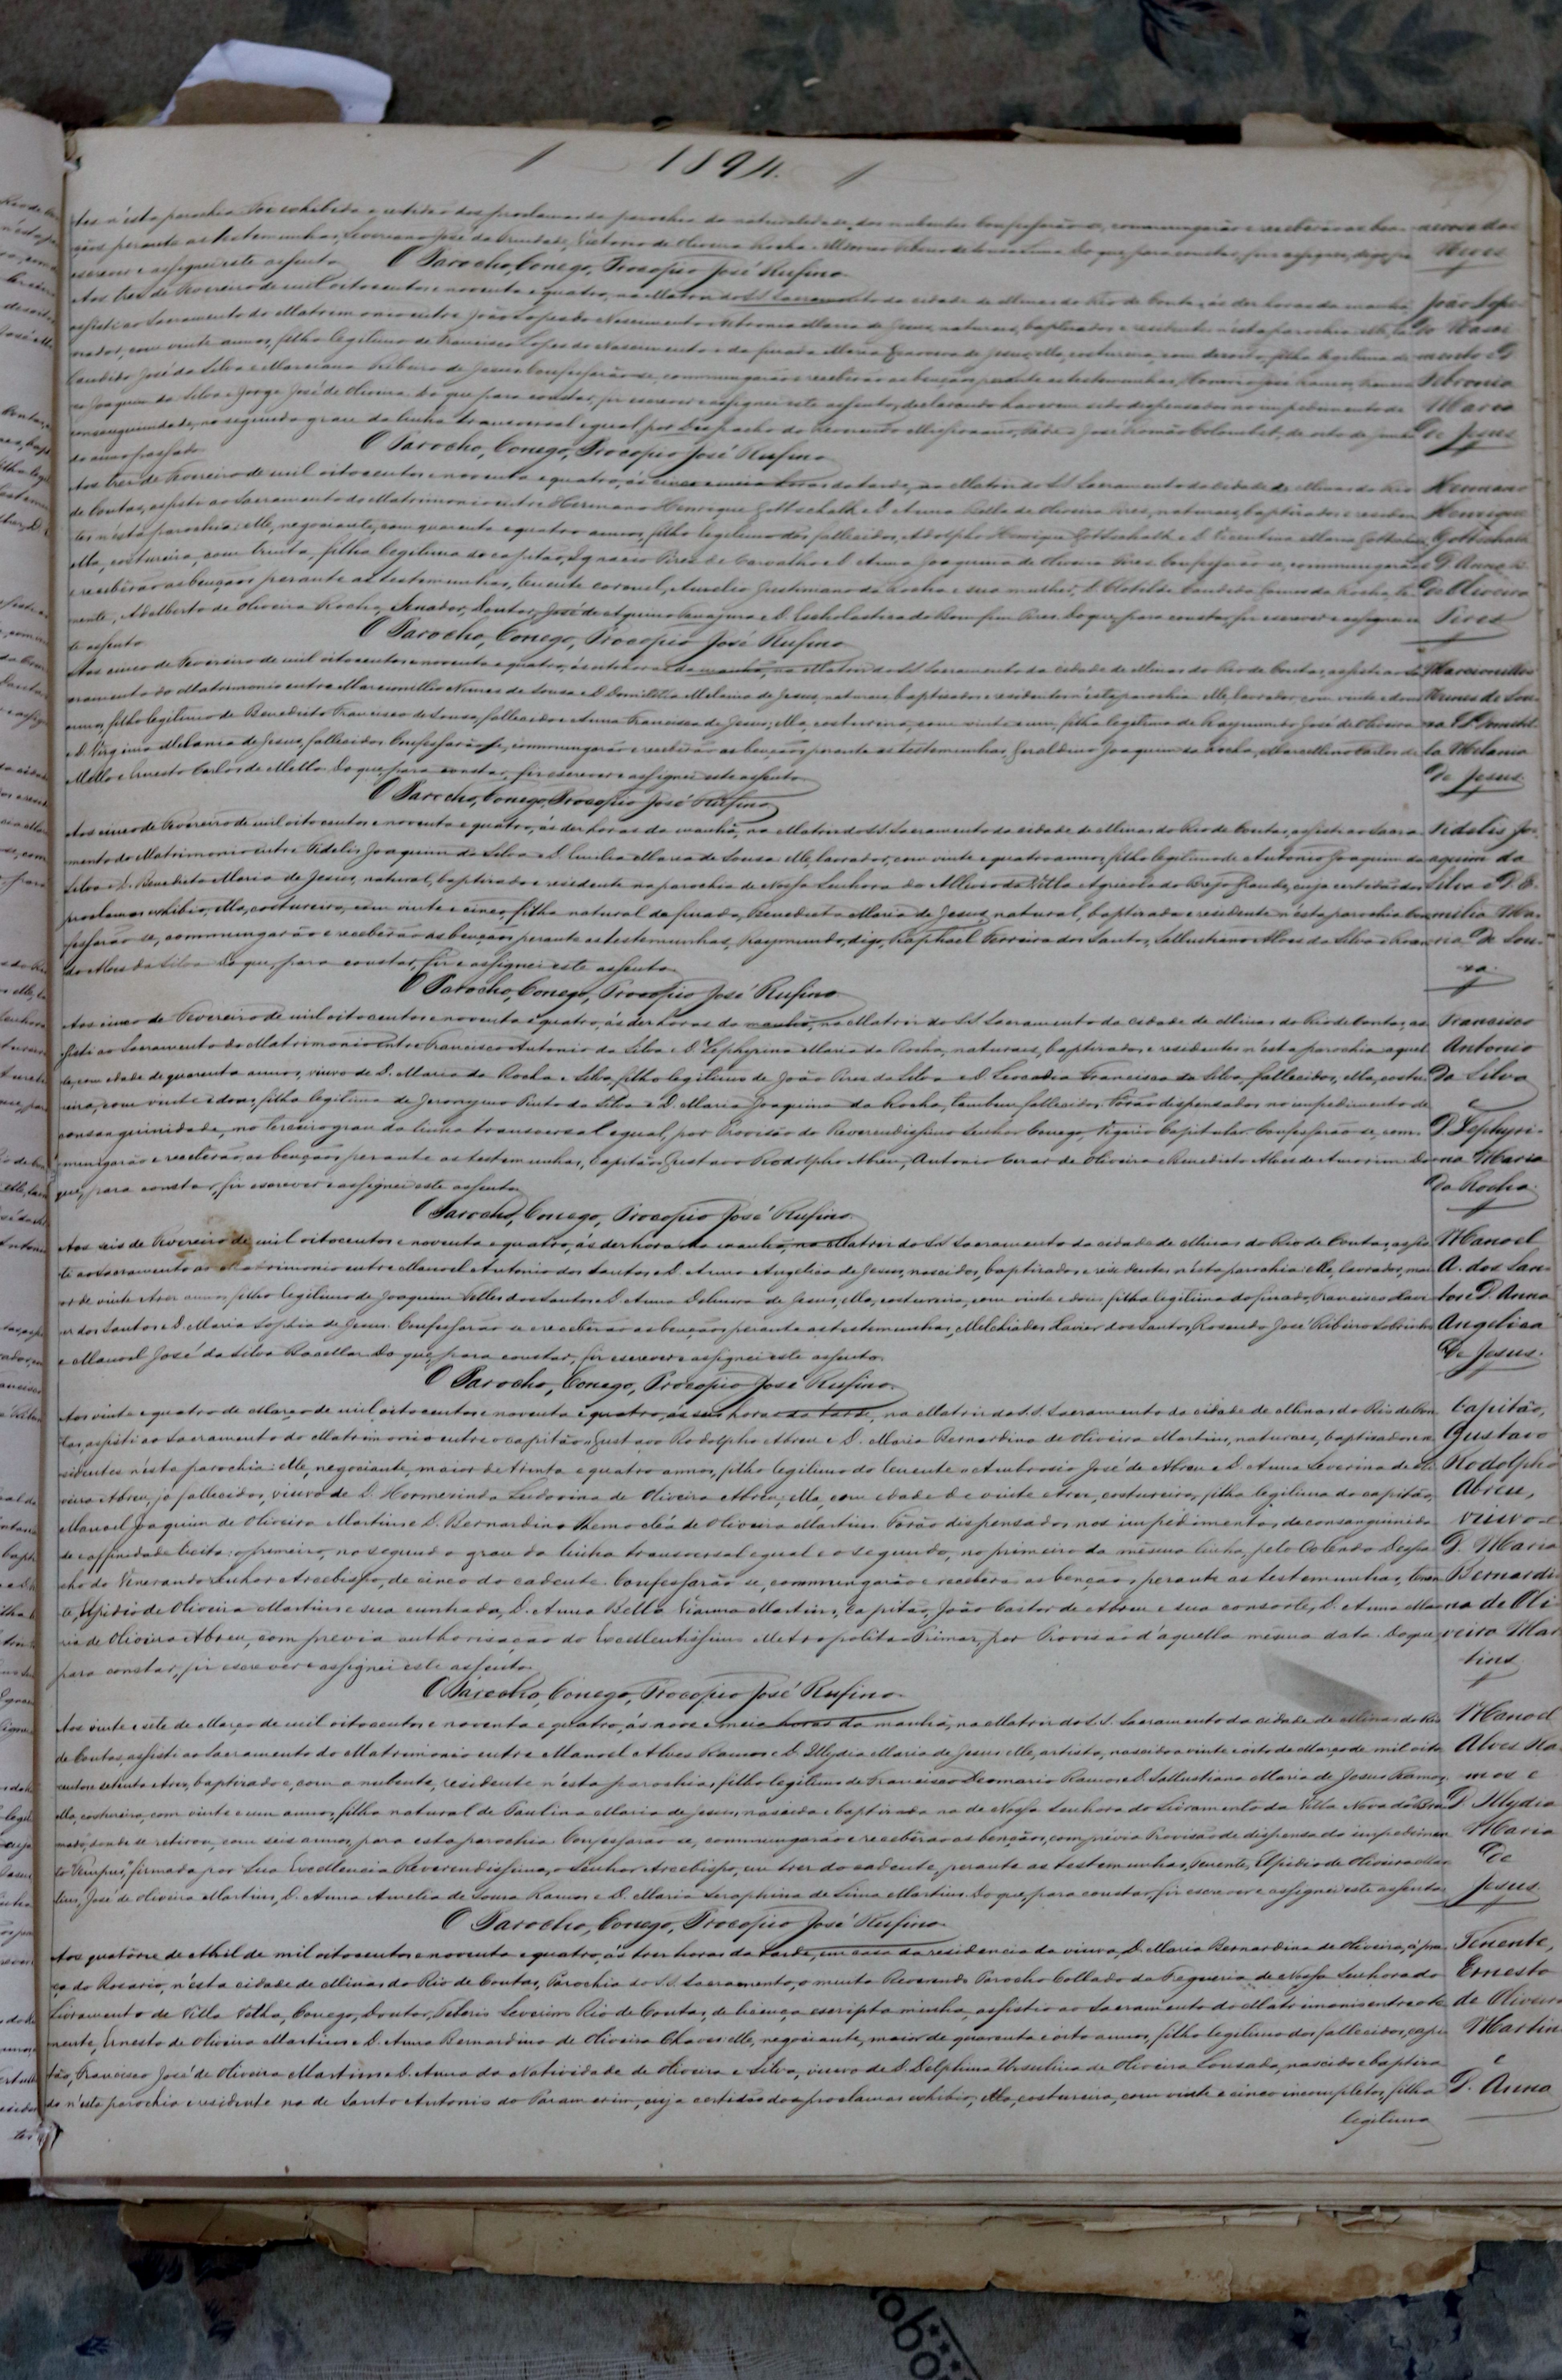 1894.
tes n'esta parochia. Foi exhibida a certidão dos proclamas da parochia da naturalidade dos nubentes. Confessarão-se, commungarão e receberão as ben-
çãos perante as testemunhas, Severiano José da Trindade, Victorio de Oliveira Rocha e
escrever e assignei este assento. O Parocho, Conego, Procopio José Rufino
Neves
Aos tres de Fevereiro de mil oitocentos e noventa e quatro, na Matriz do SS. Sacramento da cidade de Minas do Rio de Contas, ás dez horas da manhã,
assisti ao Sacramento do Matrimonio entre João Lopes do Nascimento e Sebronia Maria de Jesus, naturaes, baptizados e residentes n'esta parochia: elle, la-
vrador, com vinte annos, filho legitimo de Francisco Lopes do Nascimento e da finada Maria de Jesus; ella, costureira, com dezoito, filha legitima de
Candido José da Silva e Marciana Ribeiro de Jesus. Confessarão-se, commungarão e receberão as bençãos perante as testemunhas,
Joaquim da Silva e Jorge José de Oliveira. Do que, para constar, fiz escrever e assignei este assento, declarando haverem sido dispensados no impedimento de
consanguinidade, no segundo grau da linha transversal egual, por Despacho do Reverendo Missionario, Padre José Romão Colombet, de oito de
do anno passado.
O Parocho, Conego, Procopio José Rufino
João Lopes
do Nasci
mento e D.
Sebronia
Maria
de Jesus
Aos tres de Fevereiro de mil oitocentos e noventa e quatro, ás cinco e meia horas da tarde, na Matriz do SS. Sacramento da cidade de Minas do Rio
de Contas, assisti ao Sacramento do Matrimonio entre Hermano Henrique Gottschalk e D. Anna Bella de Oliveira Pires, naturaes, baptizados e residen-
tes n'esta parochia: elle, negociante, com quarenta e quatro annos, filho legitimo dos fallecidos, Adolpho Henrique Gottschalk e D. Maria Gottschalk;
ella, costureira, com trinta, filha legitima do capitão, Ignacio Pires de Carvalho e D. Anna Joaquina de Oliveira Pires. Confessarão-se, commungarão
e receberão as bençãos perante as testemunhas, tenente coronel, Aurelio Justiniano da Rocha e sua mulher, D. Clotildes Candida da Rocha, te-
nente, Adalberto de Oliveira Rocha, Senador, Doutor, José de Aquino Tanajura e D. Escholastica do Bom fim Pires. Do que, para constar, fiz escrever e assignei es-
te assento.
O Parocho, Conego, Procopio José Rufino
Hermano
Henrique
Gottschalk
D. Anna B.
de Oliveira
Pires
Aos cinco de Fevereiro de mil oitocentos e noventa e quatro, ás oito horas da manhã, na Matriz do SS. Sacramento da cidade de Minas do Rio de Contas, assisti ao Sa-
cramento do Matrimonio entre Marcimillio Nunes de Sousa e D. Domitilla Melania de Jesus, naturaes, baptizados e residentes n'esta parochia: elle, lavrador, com vinte e dous
annos, filho legitimo de Benedicto Francisco de Sousa, fallecido e Anna Francisca de Jesus; ella, costureira, com vinte e um, filha legitima de Raymundo José de Oliveira
e D. Virginia Melania de Jesus, fallecidos. Confessarão-se, commungarão e receberão as bençãos perante as testemunhas, Geraldino Joaquim da Rocha, Marcellino Carlos de
Mello e Ernesto Carlos de Mello. Do que, para constar, fiz escrever e assignei este assento.
O Parocho, Conego, Procopio José Rufino
Marcimillio
Nunes de Sou-
sa e D. Domitil-
la Melania
de Jesus
Aos cinco de Fevereiro de mil oitocentos e noventa e quatro, ás dez horas da manhã, na Matriz do SS. Sacramento da cidade de Minas do Rio de Contas, assisti ao Sacra-
mento do Matrimonio entre Fidelis Joaquim da Silva e D. Emilia Maria de Sousa: elle, lavrador, com vinte e quatro annos, filho legitimo de Antonio Joaquim da
Silva e D. Benedicta Maria de Jesus, natural, baptizado e residente na parochia de Nossa Senhora do Allivio da Villa Agricola do Brejo Grande, cuja certidão dos
proclamas exhibio; ella, costureira, com vinte e cinco, filha natural da finada, Benedicta Maria de Jesus, natural, baptizada e residente n'esta parochia. Con-
fessarão-se, commungarão e receberão as bençãos perante as testemunhas, Raymundo, digo, Raphael Ferreira dos Santos, Sallustiano Alves da Silva e
do Alves da Silva. Do que, para constar, fiz e assignei este assento.
O Parocho, Conego, Procopio José Rufino
Fidelis Jo-
aquim da
Silva e D. E-
milia Ma-
ria de Sou-
sa.
Aos cinco de Fevereiro de mil oitocentos e noventa e quatro, ás dez horas da manhã, na Matriz do SS. Sacramento da cidade de Minas do Rio de Contas, as-
sisti ao Sacramento do Matrimonio entre Francisco Antonio da Silva e D. Zephyrina Maria da Rocha, naturaes, baptizados e residentes n'esta parochia: aquel-
le, com edade de quarenta annos, viuvo de D. Maria da Rocha e Silva, filho legitimo de João Pires da Silva e D. Leocadia Francisca da Silva, fallecidos, ella, costu-
reira, com vinte e dous, filha legitima de Jeronymo Pinto da Silva e D. Maria Joaquina da Rocha, tambem fallecidos. Forão dispensados no impedimento de
consanguinidade, no terceiro grau da linha transversal egual, por Provisão do Reverendissimo Senhor Conego, Vigario Capitular. Confessarão-se, com-
mungarão e receberão as bençãos perante as testemunhas, Capitão, Gustavo Rodolpho Abreu, Antonio Cezar de Oliveira e Benedicto Alves de Amorim. Do
que, para constar, fiz escrever e assignei este assento.
O Parocho, Conego, Procopio José Rufino.
Francisco
Antonio
da Silva
e
D. Zephyri-
na Maria
da Rocha.
Aos seis de Fevereiro de mil oitocentos e noventa e quatro, ás dez horas da manhã, na Matriz do SS. Sacramento da cidade de Minas do Rio de Contas, assis-
ti ao Sacramento do Matrimonio entre Manoel Antonio dos Santos e D. Anna Angelica de Jesus, nascidos, baptizados e residentes n'esta parochia: elle, lavrador, mai-
or de vinte e tres annos, filho legitimo de Joaquim Telles dos Santos e D. Anna Delmira de Jesus; ella, costureira, com vinte e dois, filha legitima do finado, Francisco Xavi-
er dos Santos e D. Maria Sophia de Jesus. Confessarão-se e receberão as bençãos perante as testemunhas, Melchiades Xavier dos Santos, Rosendo José Ribeiro Sobrinho
e Manoel José da Silva Bacellar. Do que, para constar, fiz escrever e assignei este assento.
O Parocho, Conego, Procopio José Rufino.
Manoel
A. dos San-
tos e D. Anna
Angelica
de Jesus.
Aos vinte e quatro de Março de mil oitocentos e noventa e quatro, ás seis horas da tarde, na Matriz do SS. Sacramento da cidade de Minas do Rio de Con-
tas, assisti ao Sacramento do Matrimonio entre o capitão, Gustavo Rodolpho Abreu e D. Maria Bernardina de Oliveira Martins, naturaes, baptizados e re-
sidentes n'esta parochia: elle, negociante, maior de trinta e quatro annos, filho legitimo do tenente, Ambrosio José de Abreu e D. Anna Severina de Oli-
veira Abreu, já fallecidos, viuvo de D. Hormerinda Ludovina de Oliveira Abreu; ella, com edade de vinte e tres, costureira, filha legitima do capitão,
Manoel Joaquim de Oliveira Martins e D. Bernardina Themocléa de Oliveira Martins. Forão dispensados nos impedimentos de consanguinida-
de e affinidade licita: o primeiro, no segundo grau da linha transversal egual e o segundo, no primeiro da mesma linha, pelo Colendo Despa-
cho do Venerando Senhor Arcebispo, de cinco do cadente. Confessarão-se, commungarão e receberão as bençãos perante as testemunhas, tenen-
te, Elpidio de Oliveira Martins e sua cunhada, D. Anna Bella Vianna Martins, capitão, João Castor de Abreu e sua consorte, D. Anna Ma-
ria de Oliveira Abreu, com previa authorisação do Excellentissimo Metropolita e Primaz, por Provisão d'aquella mesma data. Do que,
para constar, fiz escrever e assignei este assento.
O Parocho, Conego, Procopio José Rufino.
Capitão,
Gustavo
Rodolpho
Abreu,
viuvo e
D. Maria
Bernardi-
na de Oli-
veira Mar-
tins.
Aos vinte e sete de Março de mil oitocentos e noventa e quatro, ás nove e meia horas da manhã, na Matriz do SS. Sacramento da cidade de Minas do Rio
de Contas, assisti ao Sacramento do Matrimonio entre Manoel Alves Ramos e D. Illydia Maria de Jesus: elle, artista, nascido a vinte e oito de Março de mil oito-
centos setenta e tres, baptizado e, com a nubente, residente n'esta parochia, filho legitimo de Francisco Ramos e D. Sallustiana Maria de Jesus Ramos;
ella, costureira, com vinte e um annos, filha natural de Paulina Maria de Jesus, nascida e baptizada na de Nossa Senhora do Livramento da Villa Nova do
donde se retirou, com seis annos, para esta parochia. Confessarão-se, commungarão e receberão as bençãos, com prévia Provisão de dispensa do impedimen-
to "Tempus", firmada por Sua Excellencia Reverendissima, o Senhor Arcebispo, em tres do cadente, perante as testemunhas, Tenente, Elpidio de Oliveira Mar-
tins, José de Oliveira Martins, D. Anna Aurelia de Sousa Ramos e D. Maria Seraphina de Lima Martins. Do que, para constar, fiz escrever e assignei este assento.
O Parocho, Conego, Procopio José Rufino.
Manoel
Alves Ra-
mos e
D. Illydia
Maria
de
Jesus.
Aos quatorze de Abril de mil oitocentos e noventa e quatro, ás tres horas da tarde, em casa da residencia da viuva, D. Maria Bernardina de Oliveira, á pra-
ça do Rosario, n'esta cidade de Minas do Rio de Contas, Parochia do SS. Sacramento, o muito Reverendo Parocho Collado da Freguezia de Nossa Senhora do
Livramento de Villa Velha, Conego, Doutor, Severino Rio de Contas, de licença escripta minha, assistio ao Sacramento do Matrimonio entre o te-
nente, Ernesto de Oliveira Martins e D. Anna Bernardina de Oliveira Chaves: elle, negociante, maior de quarenta e oito annos, filho legitimo dos fallecidos, capi-
tão, Francisco José de Oliveira Martins e D. Anna da Natividade de Oliveira e Silva, viuvo de D. Delphina Ursulina de Oliveira Lousada, nascido e baptiza-
do n'esta parochia e residente na de Santo Antonio do Paramerim, cuja certidão dos proclamas exhibio; ella, costureira, com vinte e cinco incompletos, filha
legitima
Tenente,
Ernesto
de Oliveira
Martins
e
D. Anna